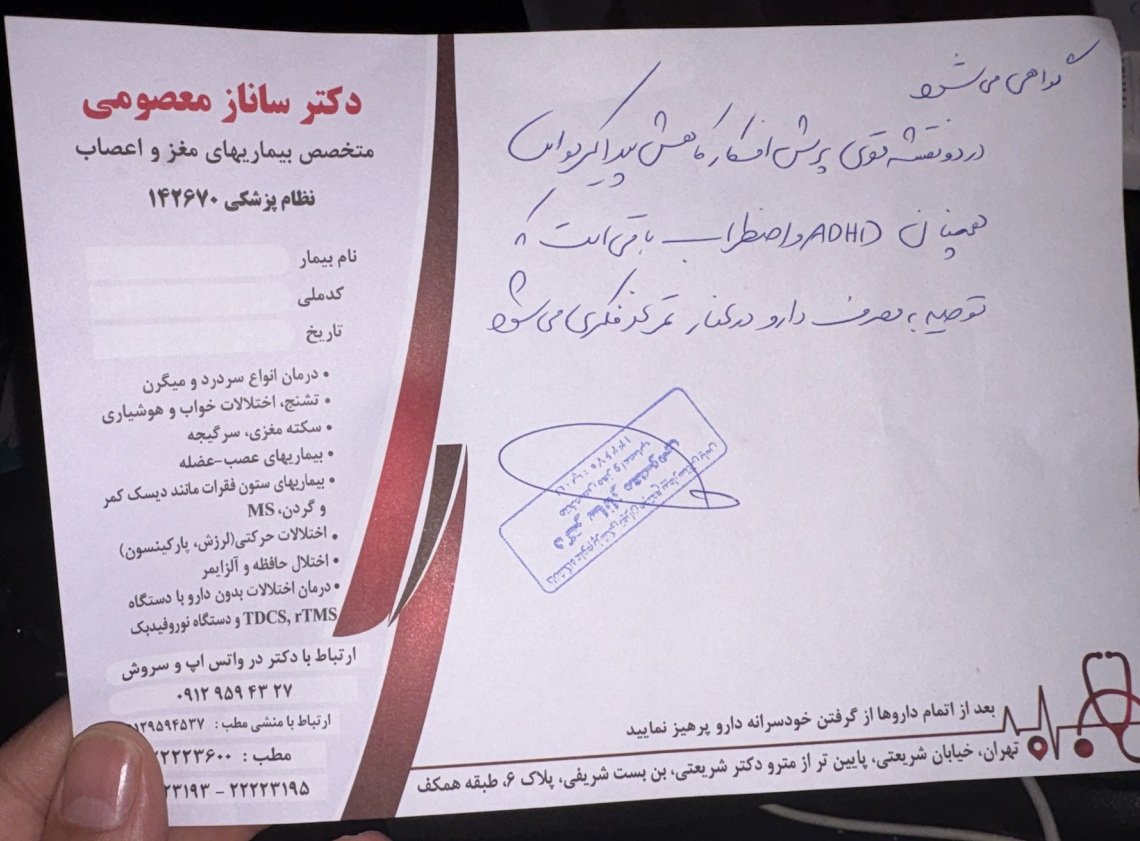 دکتر ساناز معصومی
متخصص بیماریهای مغز و اعصاب
نظام پزشکی ۱۴۲۶۷۰
نام بیمار
کدملی
تاریخ
• درمان انواع سردرد و میگرن
• تشنج، اختلالات خواب و هوشیاری
• سکته مغزی، سرگیجه
• بیماریهای عصب-عضله
• بیماریهای ستون فقرات مانند دیسک کمر
و گردن، MS
• اختلالات حرکتی(لرزش، پارکینسون)
• اختلال حافظه و آلزایمر
• درمان اختلالات بدون دارو با دستگاه
TDCS, rTMS و دستگاه نوروفیدبک
ارتباط با دکتر در واتس اپ و سروش
۰۹۱۲ ۹۵۹ ۴۳ ۲۷
ارتباط با منشی مطب : ۱۲۹۵۹۴۵۳۷
مطب : ۲۲۲۲۳۶۰۰
۲۳۱۹۳ - ۲۲۲۲۳۱۹۵
گواهی می‌شود
در دو نقشه قوی پرش افکار کاهش پیدا کرده است
همچنان ADHD و اضطراب باقی است که
توصیه به مصرف دارو در کنار تمرکز فکری می‌شود
دکتر ساناز معصومی
متخصص مغز و اعصاب
بعد از اتمام داروها از گرفتن خودسرانه دارو پرهیز نمایید
تهران، خیابان شریعتی، پایین تر از مترو دکتر شریعتی، بن بست شریفی، پلاک ۶، طبقه همکف